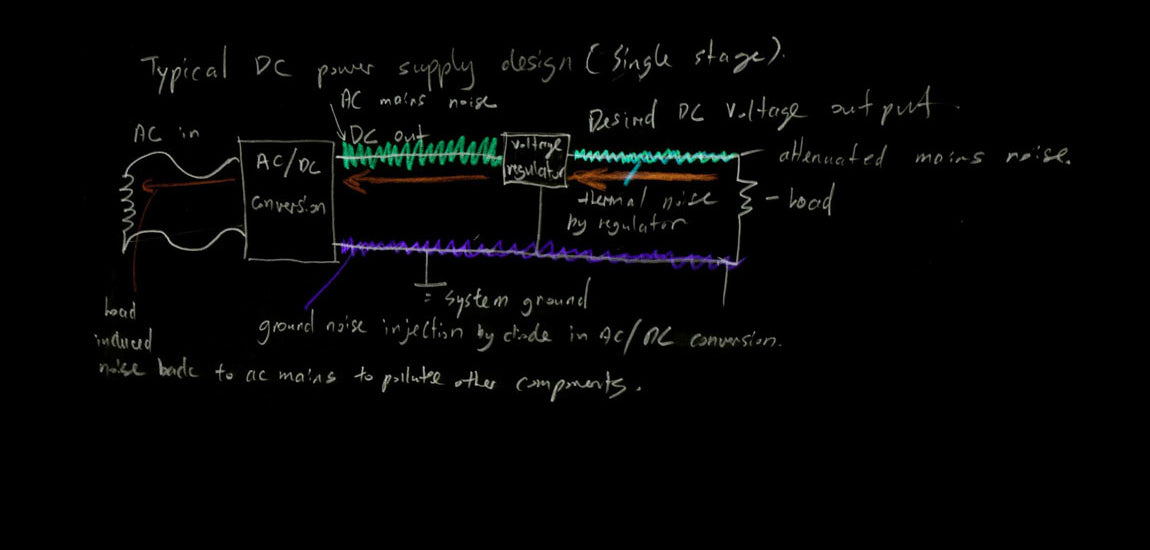 Typical DC power supply design (Single stage).
AC mains noise
Desired DC Voltage output.
AC in
DC out
voltage
regulator
AC/DC
conversion
attenuated mains noise.
thermal noise
by regulator
Load
= System ground
Load
induced
noise back to ac mains to pollute other components.
ground noise injection by diode in AC/DC conversion.